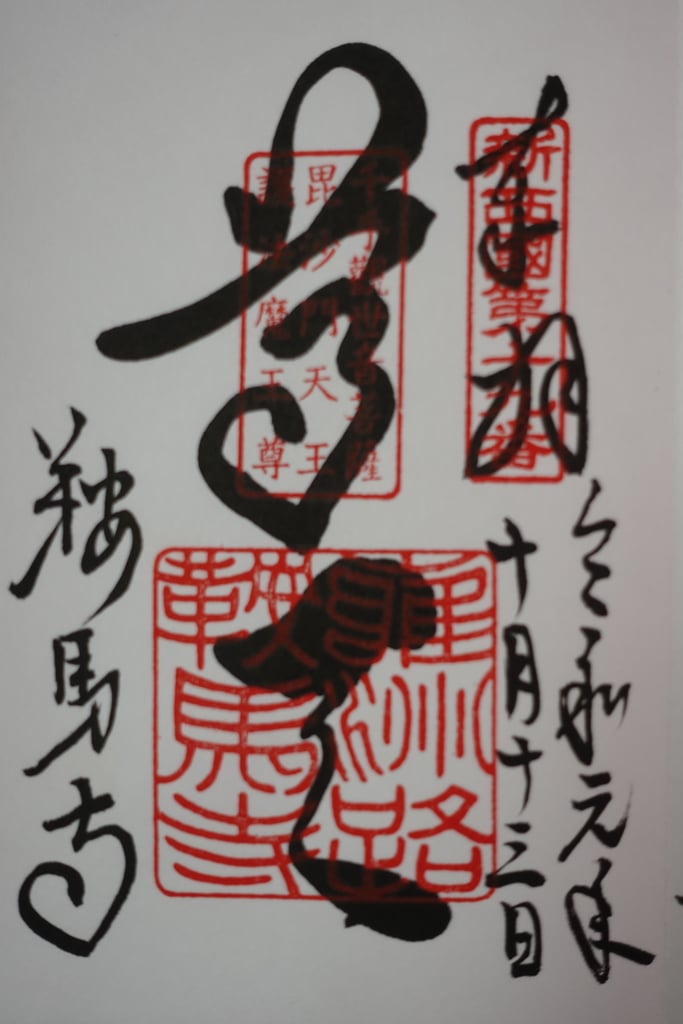 奉拝
新西國第十九番
令和元年
十月十三日
千手觀世音菩薩
毘沙門天王
護法魔王尊
尊天
雍州路
鞍馬寺
鞍馬寺